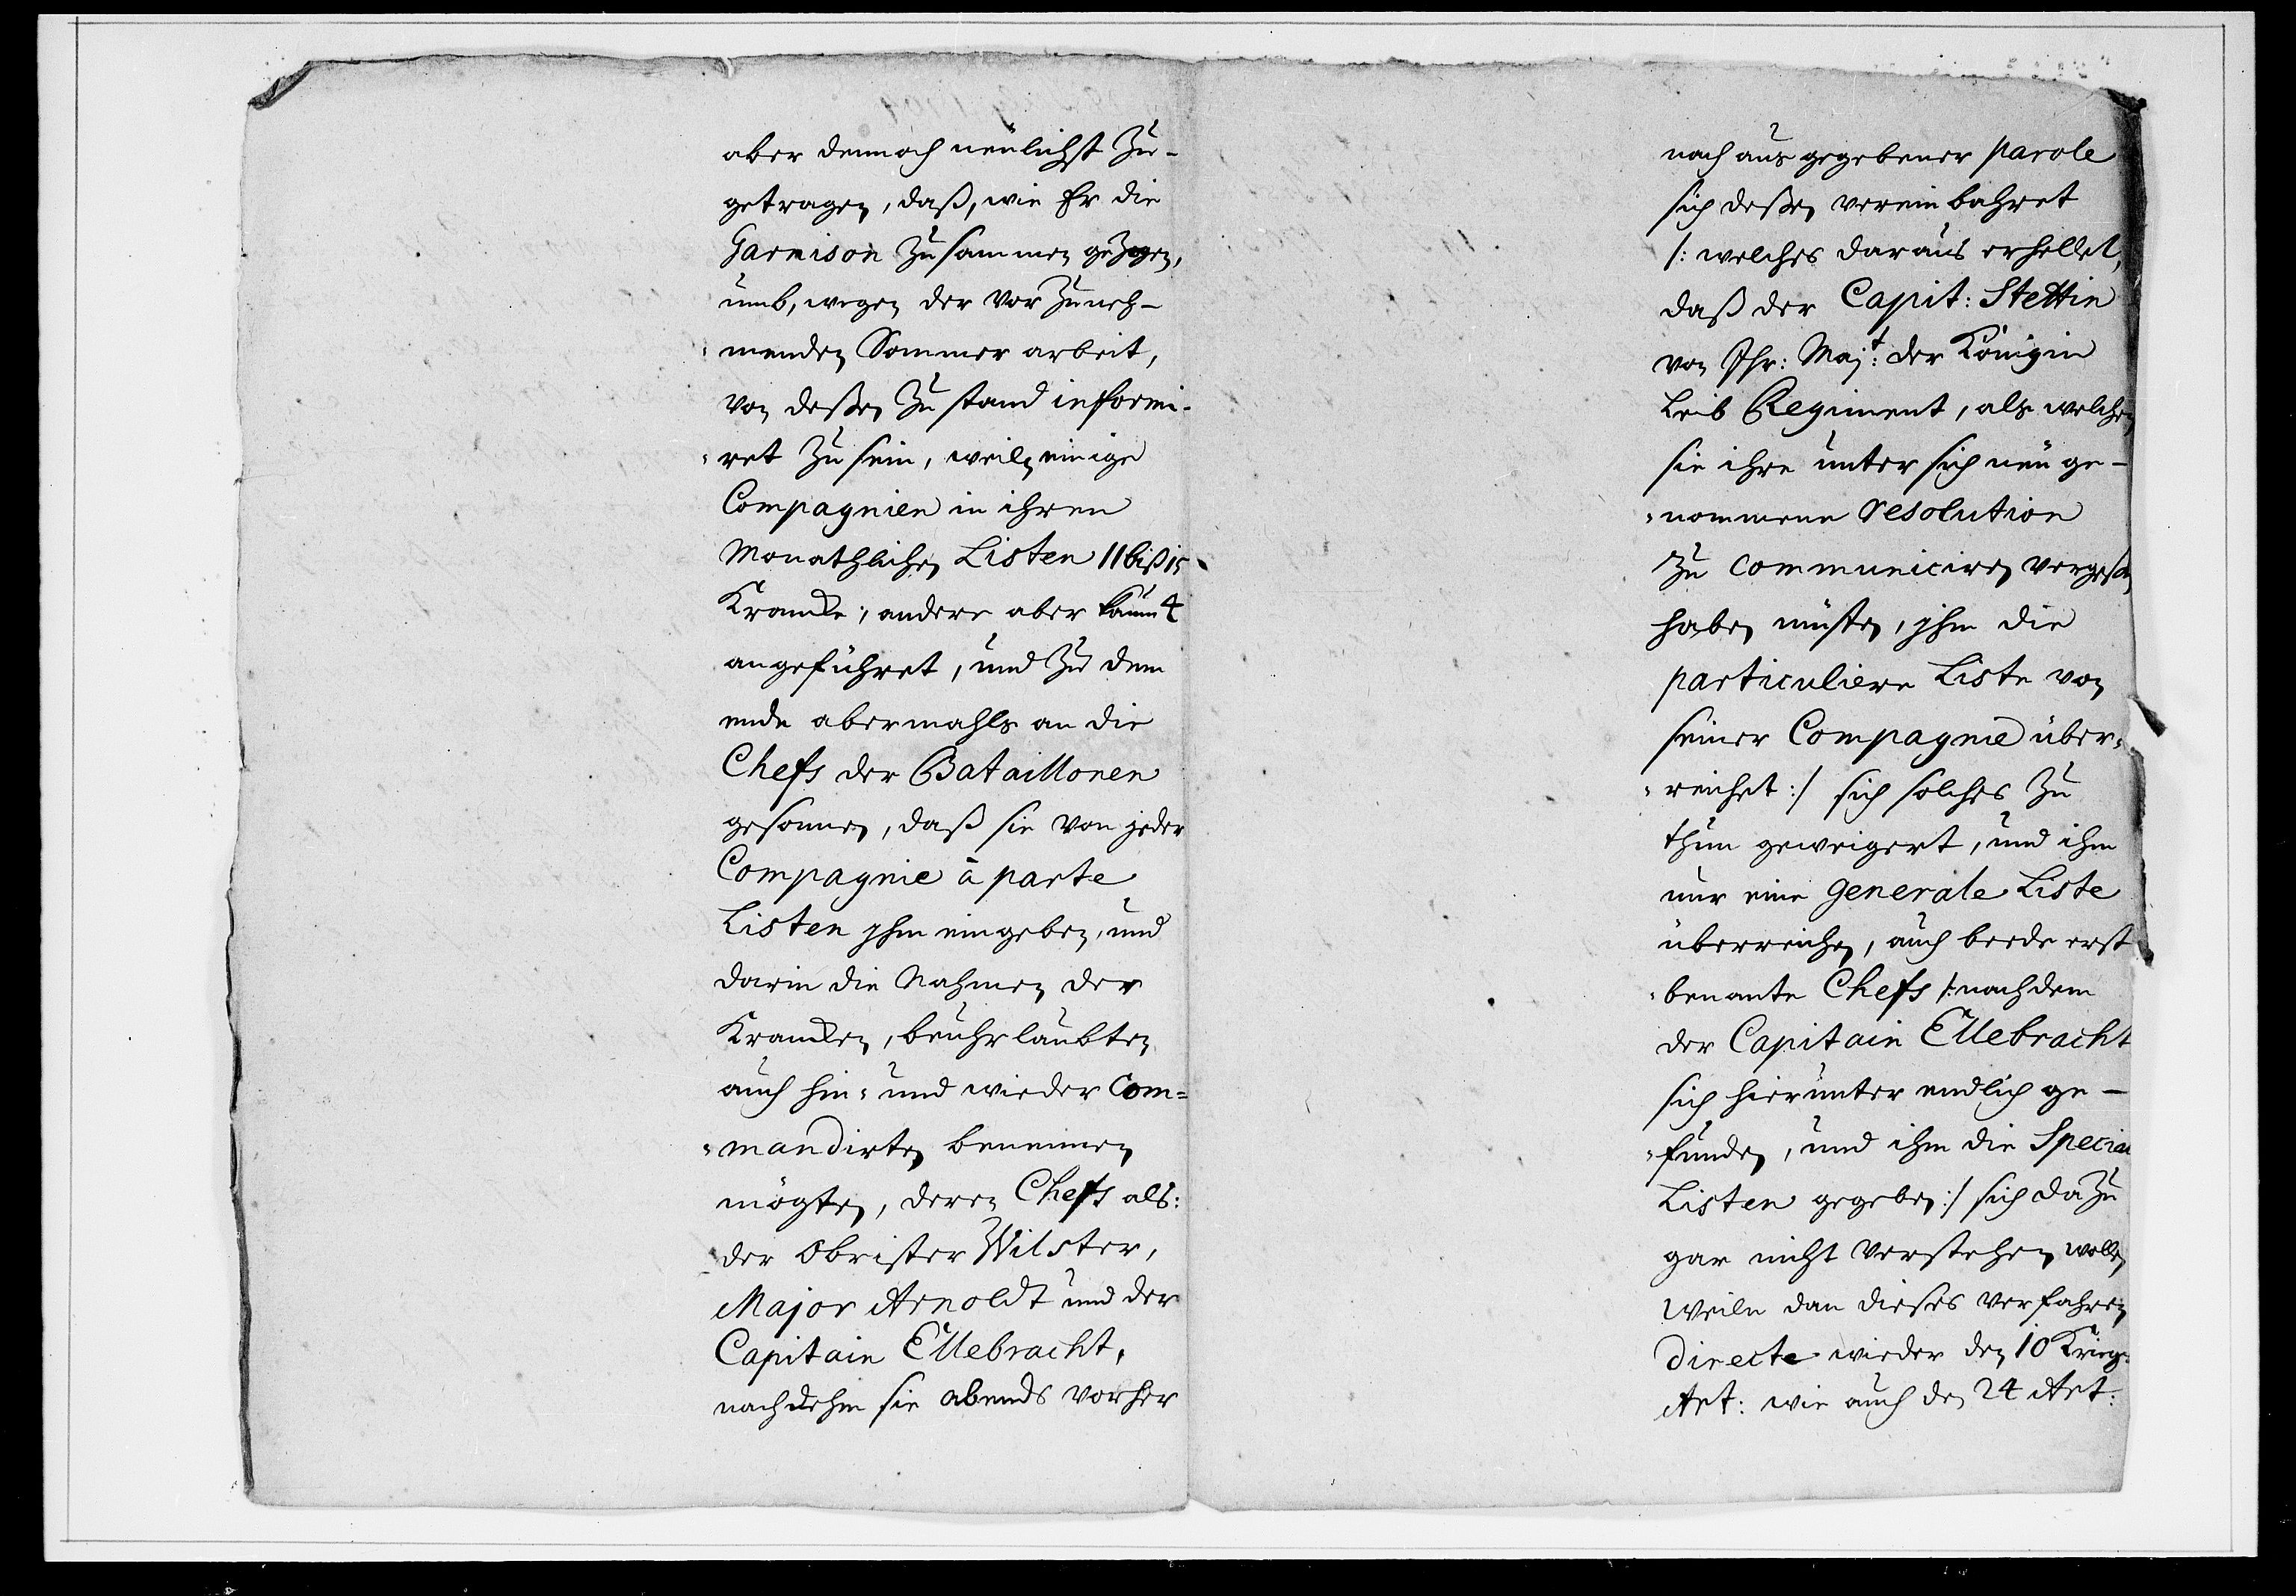 aber dennoch neulichst Zu-
getragen, daß, wie Er die
Garnison Zusammen gezogen,
umb, wegen der vor Zuneh-
menden Sommer arbeit,
von deßen Zustand informi-
ret zu sein, weiln einige
Compagnien in ihren
Monathlichen Listen 11 biß 15
Krancke, andere aber kaum 4
angeführet, und Zu dem
ende abermahls an die
Chefs der Bataillonen
gesonnen, daß sie von jeder
Compagnie à parte
Listen jhm eingeben, und
darin die Nahmen der
Krancken, beuhrlaubten
auch hin- und wieder Com=
mandirten benennen
mögten, deren Chefs als:
der Obrister Wilster,
Major Arnoldt und der
Capitain Ellebracht,
nachdehm sie abends vorher
nach ausgegebener parole
sich deßen vereinbahret
/: welches daraus erhellet,
daß der Capit: Stettin
von Ihr: Majt: der Königin
Leib Regiment, als welchen
sie ihre unter sich neu ge-
nommene resolution
Zu communiciren vergeßen
haben müsten, jhm die
particuliere Liste von
seiner Compagnie über-
reichet :/ sich solches Zu
thun geweigert, und ihm
nur eine generale Liste
überreichen, auch beede erst
benante Chefs /: nachdem
der Capitain Ellebracht
sich hierunter endlich ge-
funden, und ihm die Special
Listen gegeben :/ sich dazu
gar nicht verstehen wollen
Weiln dan dieses verfahren
directe wieder den 10 Kriegs
Art: wie auch den 24 Art: